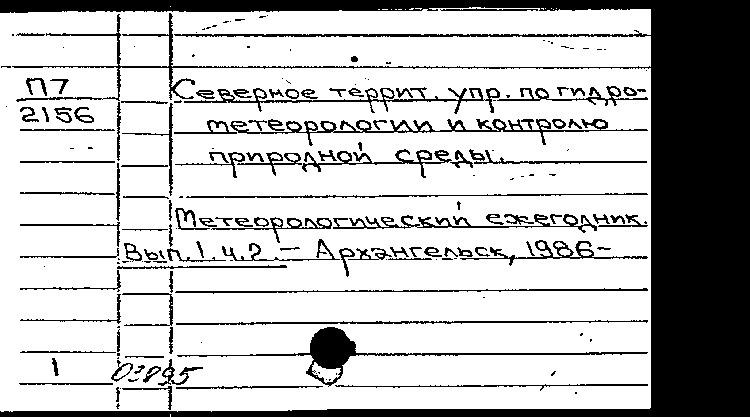 П7
2156
Северное террит. упр. по гидро-
метеорологии и контролю
природной среды.
Метеорологический ежегодник.
Вып. 1. ч. 2. – Архангельск, 1986–
1
03895